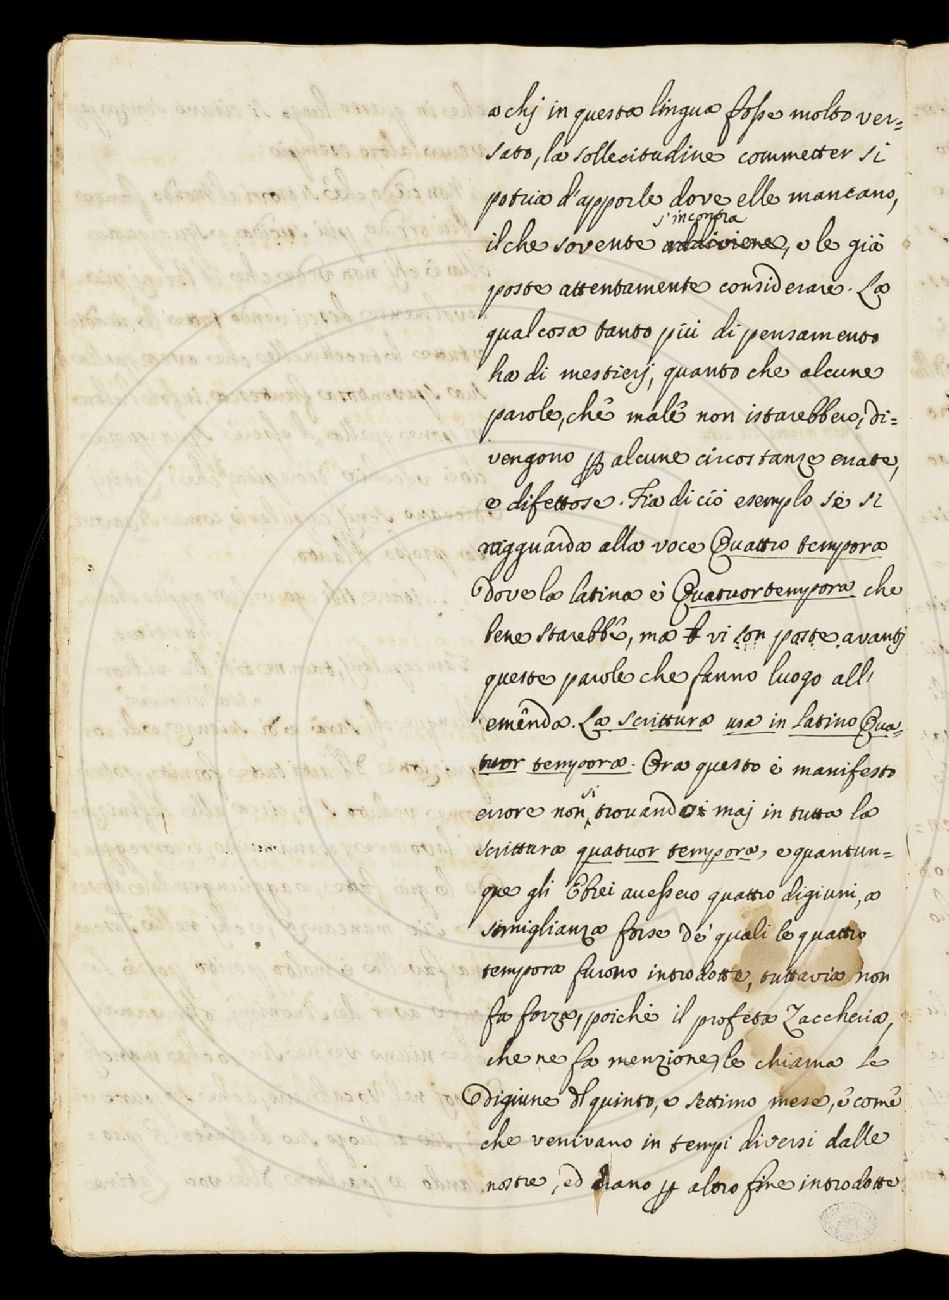 a chj in questa lingua fosse molto ver=
sato, la sollecitudine commetter si
potria d'apporle dove elle mancano,
s'incontra
il che sovente addiviene, e le già
poste attentamente considerare. La
qual cosa tanto più di pensamento
ha di mestierj, quanto che alcune
parole, che male non istarebbero, di=
vengono ꝑ alcune circostanze errate,
e difettose. Fia di ciò esemplo se si
ragguarda alla voce Quattro tempora
dove la latina è Quatuor tempora che
bene starebbe, ma vi son poste avantj
queste parole che fanno luogo all'
emenda. La scrittura usa in latino Qua=
tuor tempora. Ora questo è manifesto
si
errore non trovando maj in tutta la
scrittura quatuor tempora, e quantun=
que gli Ebrei avessero quattro digiuni, a
simiglianza forse de' quali le quattro
tempora furono introdotte, tuttavia non
fa forza, poichè il profeta Zaccheria,
che ne fa menzione, le chiama le
digiune dl quinto, e settimo mese, e come
che venivano in tempi diversi dalle
nostre, ed erano ꝑ altro fine introdotte